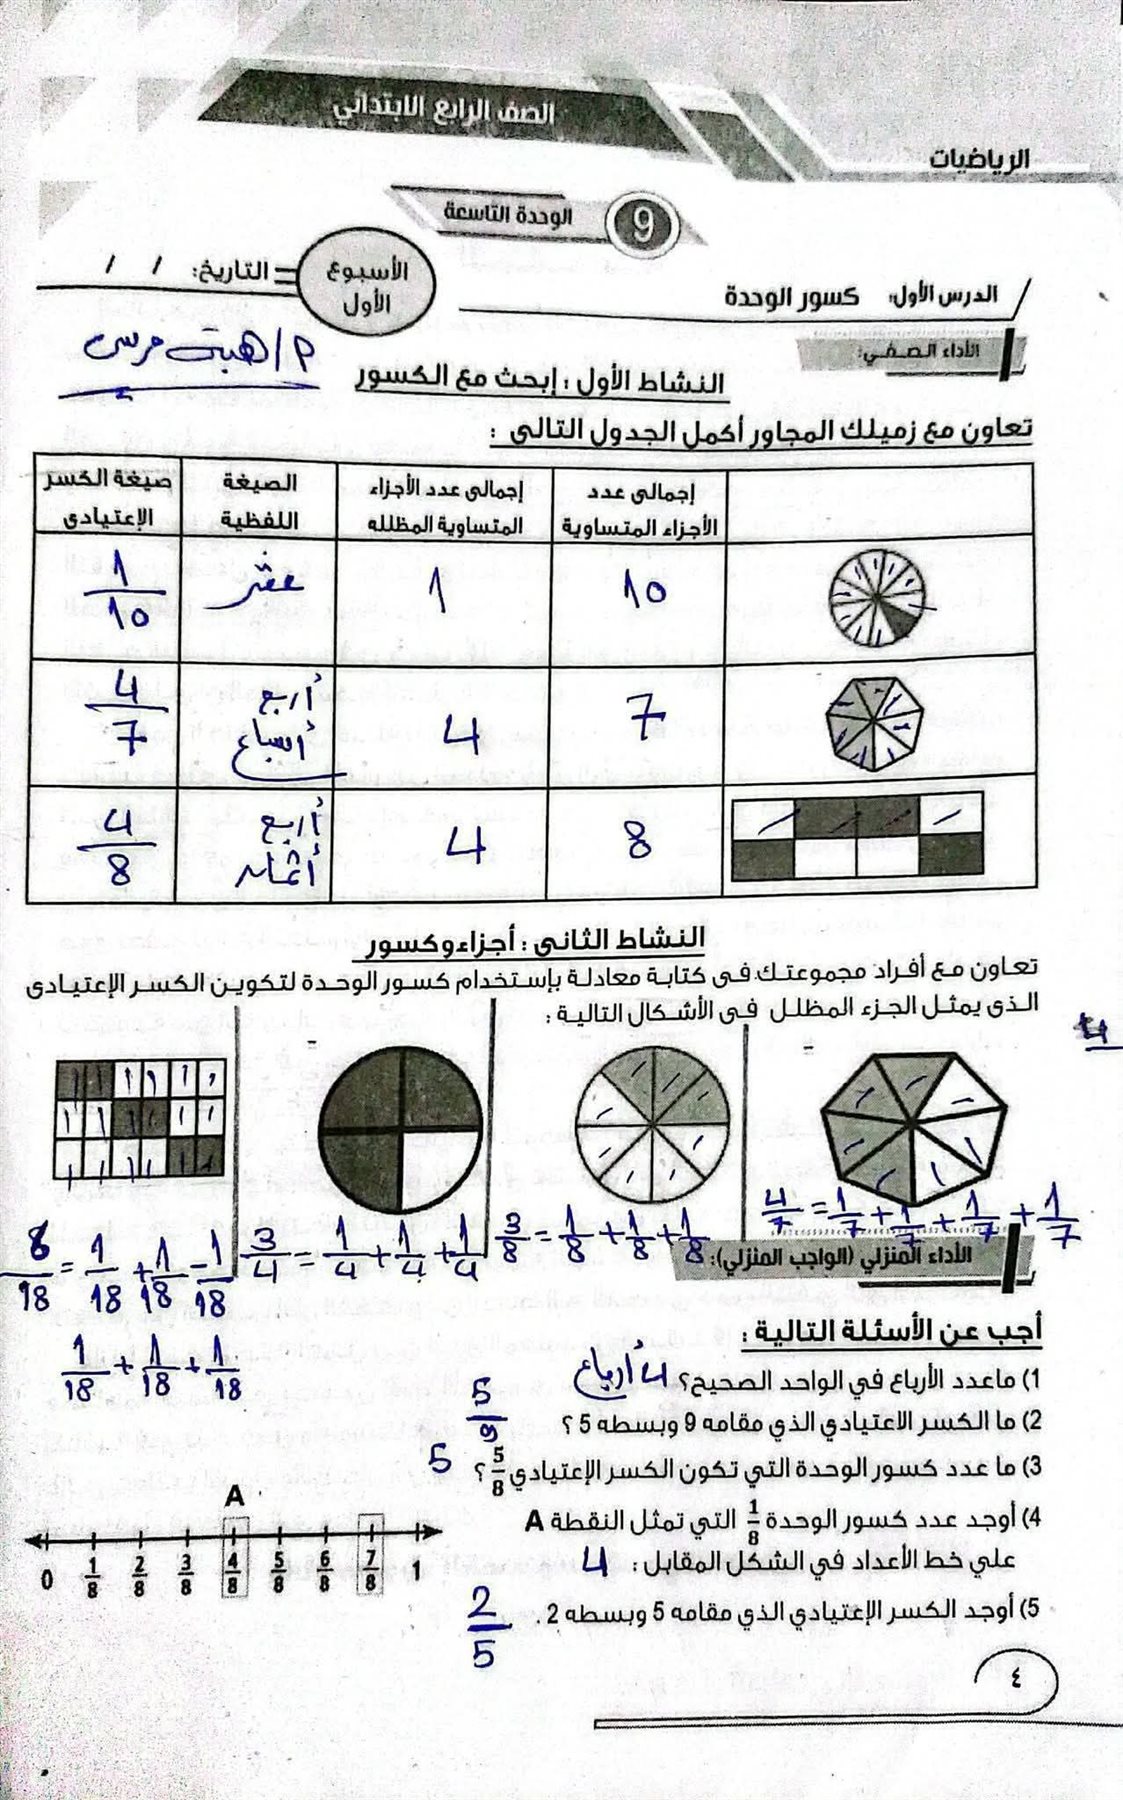 الصف الرابع الابتدائي
الرياضيات
9 الوحدة التاسعة
الأسبوع الأول
التاريخ: / /
الدرس الأول: كسور الوحدة
الأداء الصفي:
م/ هبة مرسى
النشاط الأول : إبحث مع الكسور
تعاون مع زميلك المجاور أكمل الجدول التالى :
إجمالى عدد الأجزاء المتساوية | إجمالى عدد الأجزاء المتساوية المظلله | الصيغة اللفظية | صيغة الكسر الإعتيادى
10 | 1 | عشر | 1/10
7 | 4 | أربع أسباع | 4/7
8 | 4 | أربع أثمان | 4/8
النشاط الثانى : أجزاء وكسور
تعاون مع أفراد مجموعتك فى كتابة معادلة بإستخدام كسور الوحدة لتكوين الكسر الإعتيادى
الذى يمثل الجزء المظلل فى الأشكال التالية :
4/7 = 1/7 + 1/7 + 1/7 + 1/7
3/8 = 1/8 + 1/8 + 1/8
3/4 = 1/4 + 1/4 + 1/4
1/18 + 1/18
1/18 + 1/18 + 1/18
الأداء المنزلي (الواجب المنزلي):
أجب عن الأسئلة التالية :
1) ماعدد الأرباع في الواحد الصحيح؟ 4 أرباع
2) ما الكسر الاعتيادي الذي مقامه 9 وبسطه 5 ؟ 5/9
3) ما عدد كسور الوحدة التي تكون الكسر الإعتيادي 5/8 ؟ 5
4) أوجد عدد كسور الوحدة 1/8 التي تمثل النقطة A
علي خط الأعداد في الشكل المقابل : 4
A
0 1/8 2/8 3/8 4/8 5/8 6/8 7/8 1
5) أوجد الكسر الإعتيادي الذي مقامه 5 وبسطه 2 . 2/5
٤